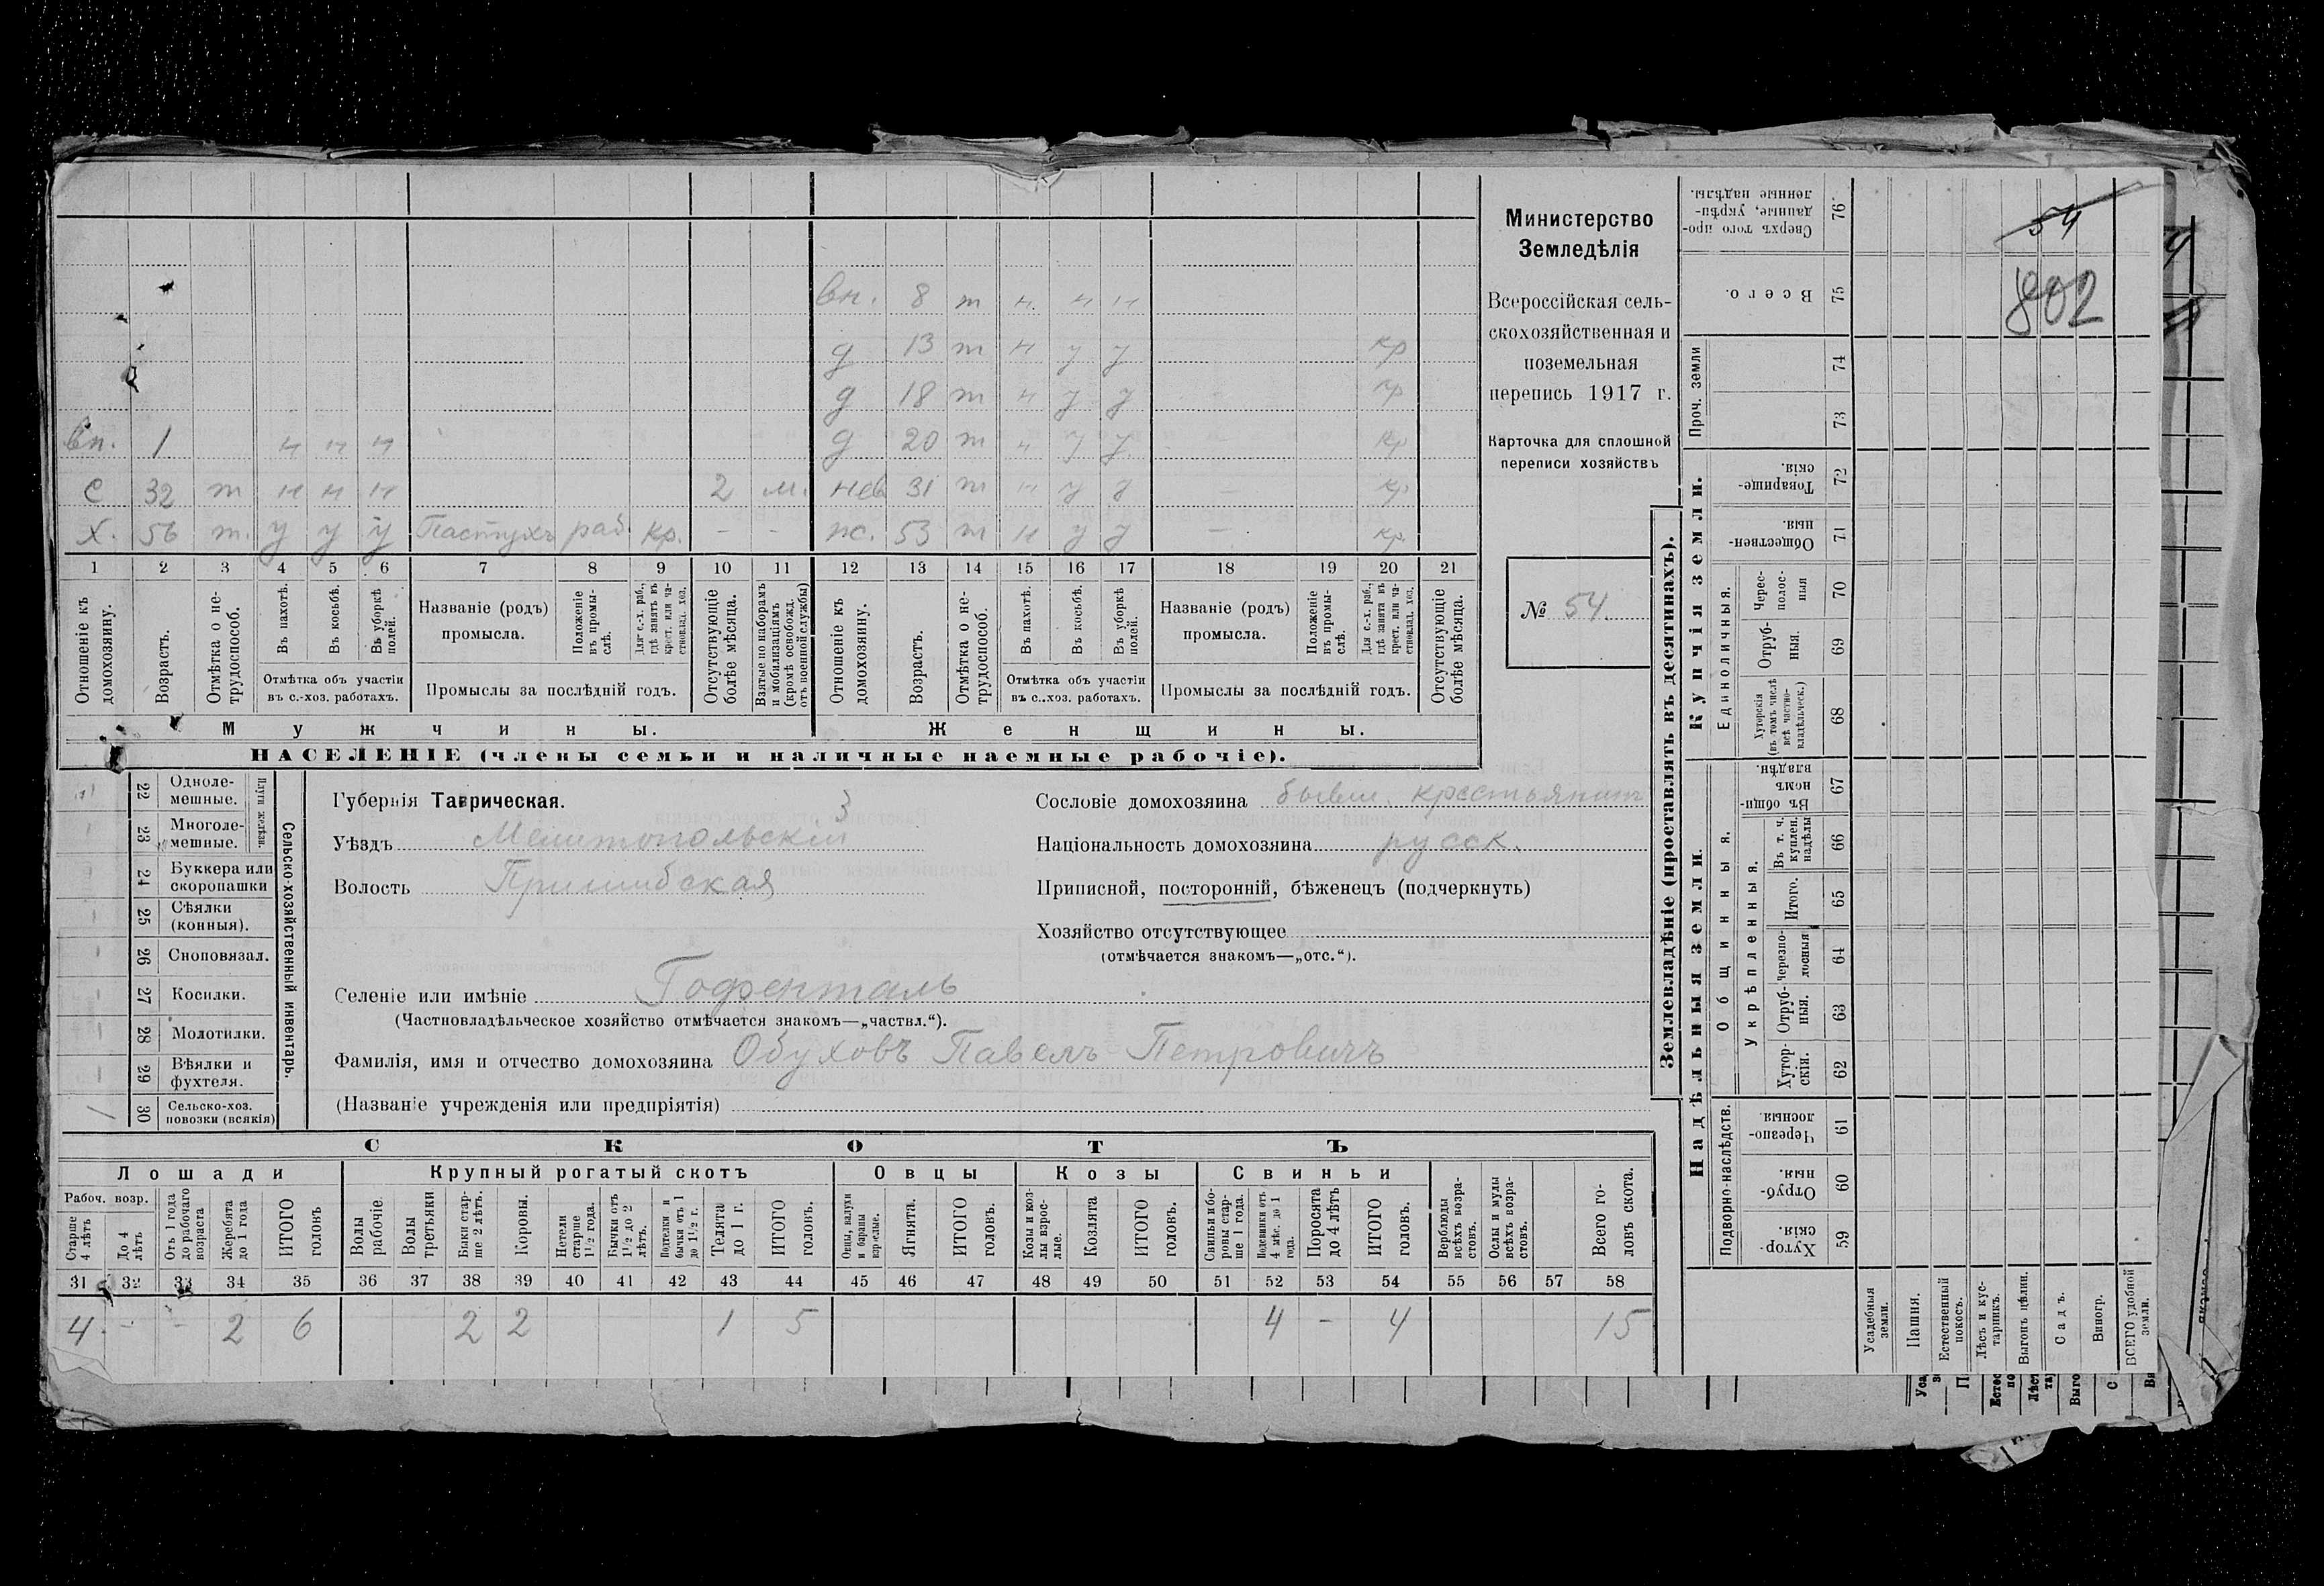 вн. 8 т н н н
д 13 т н у у кр
д 18 т н у у - кр
вн. 1 н н н д 20 т н у у кр
с 32 т н н н 2 м. нев 31 т н у у — кр
х. 56 т. у у у Пастухъ раб. кр. - - ж. 53 т н у у — кр.
1 2 3 4 5 6 7 8 9 10 11 12 13 14 15 16 17 18 19 20 21
Отношеніе къ домохозяину.
Возрастъ.
Отмѣтка о нетрудоспособ.
Въ пахотѣ.
Въ косьбѣ.
Въ уборкѣ полей.
Отмѣтка объ участіи
въ с.-хоз. работахъ.
Названіе (родъ)
промысла.
Положеніе въ промыслѣ.
Для с.-х. раб., гдѣ занятъ въ крест. или частновлад. хоз.
Промыслы за послѣдній годъ.
Отсутствующіе болѣе мѣсяца.
Взятые по наборамъ и мобилизаціямъ (кромѣ освобожд. отъ военной службы)
Отношеніе къ домохозяину.
Возрастъ.
Отмѣтка о нетрудоспособ.
Въ пахотѣ.
Въ косьбѣ.
Въ уборкѣ полей.
Отмѣтка объ участіи
въ с..хоз. работахъ.
Названіе (родъ)
промысла.
Положеніе въ промыслѣ.
Для с.-х. раб., гдѣ занята въ крест. или частновлад. хоз.
Промыслы за послѣдній годъ.
Отсутствующіе болѣе мѣсяца.
Мужчины. Женщины.
НАСЕЛЕНІЕ (члены семьи и наличные наемные рабочіе).
Министерство
Земледѣлія
Всероссійская сель-
скохозяйственная и
поземельная
перепись 1917 г.
Карточка для сплошной
переписи хозяйствъ
№ 54
Сельско-хозяйственный инвентарь.
Плуги желѣзн.
22 Одноле-
мешные.
23 Многоле-
мешные.
24 Буккера или
скоропашки
25 Сѣялки
(конныя).
26 Сноповязал.
27 Косилки.
28 Молотилки.
29 Вѣялки и
фухтеля.
30 Сельско-хоз.
повозки (всякія)
Губернія Таврическая. 3
Уѣздъ Мелитопольскій
Волость Пришибская
Сословіе домохозяина бывш. крестьянинъ
Національность домохозяина русск.
Приписной, посторонній, бѣженецъ (подчеркнуть)
Хозяйство отсутствующее
(отмѣчается знакомъ—„отс.“).
Селеніе или имѣніе Гофенталь
(Частновладѣльческое хозяйство отмѣчается знакомъ—„частвл.“).
Фамилія, имя и отчество домохозяина Обуховъ Павелъ Петровичъ
(Названіе учрежденія или предпріятія)
СКОТЪ
Лошади Крупный рогатый скотъ Овцы Козы Свиньи
Рабоч. возр.
Старше 4 лѣтъ
До 4 лѣтъ
Отъ 1 года до рабочаго возраста
Жеребята до 1 года
ИТОГО головъ
Волы рабочіе.
Волы третьяки
Быки старше 2 лѣтъ.
Коровы.
Нетели старше 1½ года.
Бычки отъ 1½ до 2 лѣтъ.
Подтелки и бычки отъ 1 до 1½ г.
Телята до 1 г.
ИТОГО головъ.
Овцы, валухи и бараны взрослые.
Ягнята.
ИТОГО головъ.
Козы и козлы взрослые.
Козлята
ИТОГО головъ.
Свиньи и боровы старше 1 года.
Подсвинки отъ 4 мѣс. до 1 года.
Поросята до 4 лѣтъ
ИТОГО головъ.
Верблюды всѣхъ возрастовъ.
Ослы и мулы всѣхъ возрастовъ.
Всего головъ скота.
31 32 33 34 35 36 37 38 39 40 41 42 43 44 45 46 47 48 49 50 51 52 53 54 55 56 57 58
4 - - 2 6 2 2 1 5 4 - 4 15
Землевладѣніе (проставлять въ десятинахъ).
Надѣльныя земли. Купчія земли.
Подворно-наслѣдств. Общинныя. Единоличныя. Проч. земли
Укрѣпленныя.
Хуторскія. 59
Отрубныя. 60
Черезполосныя. 61
Хуторскія. 62
Отрубныя. 63
Черезполосныя 64
Итого. 65
Въ т. ч. куплен. надѣлы 66
Въ общинномъ владѣн. 67
Хуторскія (въ томъ числѣ всѣ частновладѣльческ.) 68
Отрубныя. 69
Чересполосныя 70
Общественныя. 71
Товарищескія. 72
73
74
Всего. 75
Сверхъ того проданные, укрѣпленные надѣлы. 76
Усадебныя земли.
Пашня.
Естественный покосъ.
Лѣсъ и кустарникъ.
Выгонъ цѣлин.
Садъ.
Виногр.
ВСЕГО удобной земли.
54
802